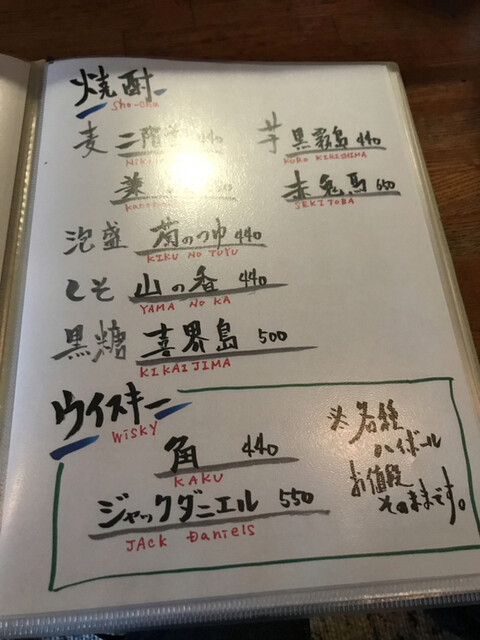 焼酎
Sho-chu
麦 二階堂 440
芋 黒霧島 440
KURO KIRISHIMA
赤兎馬 650
SEKITOBA
泡盛 菊のつゆ 440
KIKU NO TUYU
しそ 山の香 440
YAMA NO KA
黒糖 喜界島 500
KIKAIJIMA
ウイスキー
WISKY
角 440
KAKU
ジャックダニエル 550
JACK Daniels
※各種
ハイボール
お値段
そのままです。